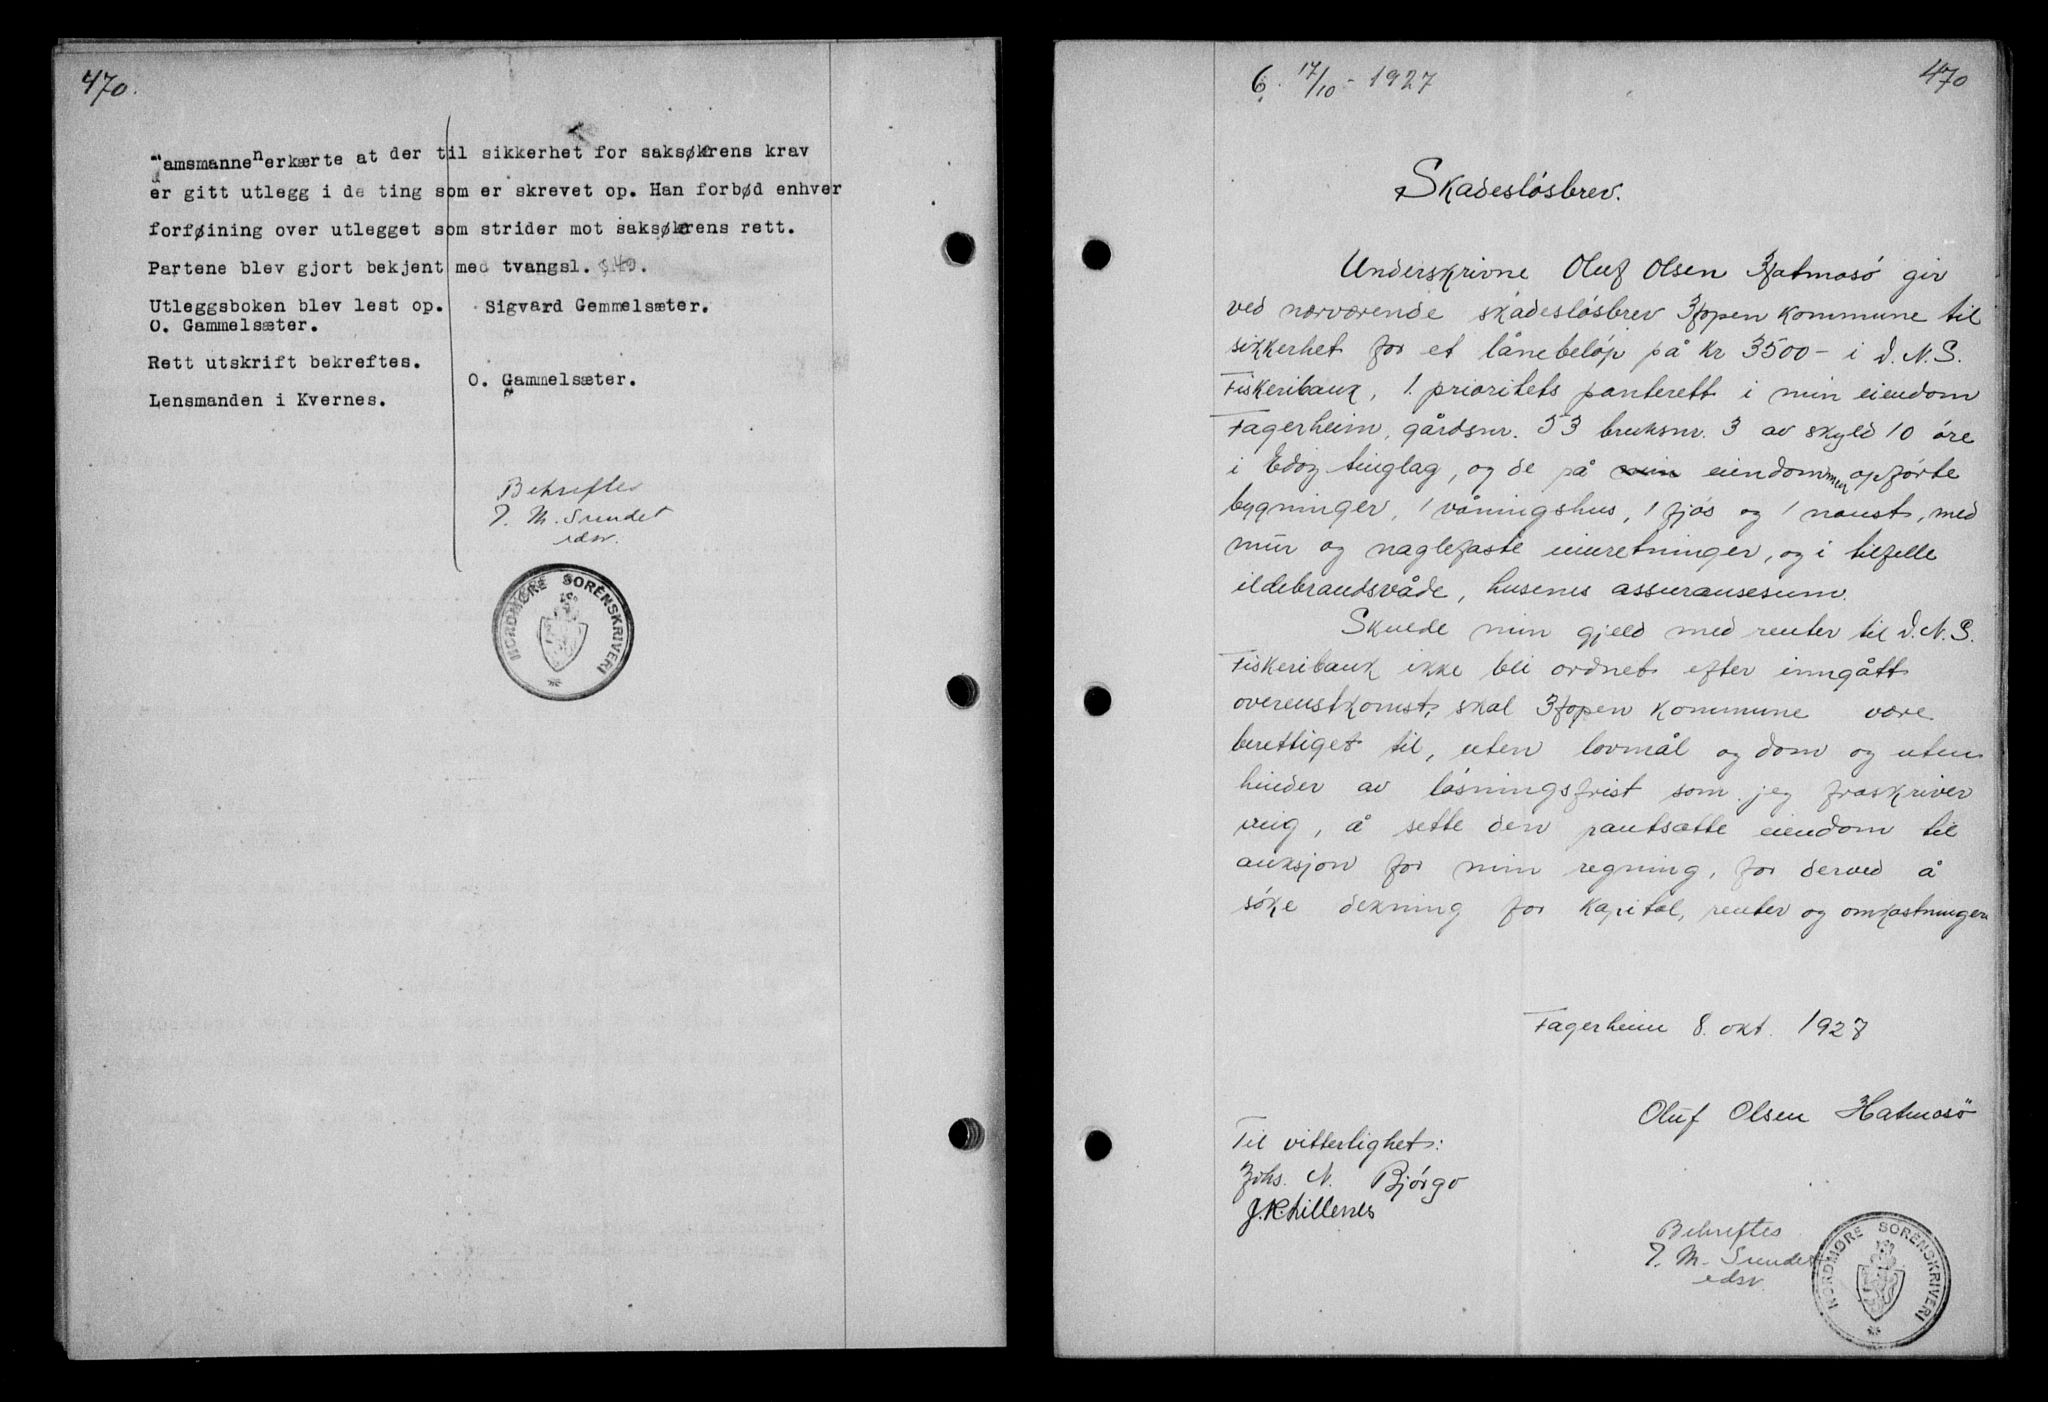 470.
"amsmannen erkærte at der til sikkerhet for saksøkerens krav
er gitt utlegg i de ting som er skrevet op. Han forbød enhver
forføining over utlegget som strider mot saksøkerens rett.
Partene blev gjort bekjent med tvangsl. § 40.
Utleggsboken blev lest op. Sigvard Gemmelsæter.
O. Gammelsæter.
Rett utskrift bekreftes.
O. Gammelsæter.
Lensmanden i Kvernes.
Bekreftes
T. M. Sundet
edsv.
NORDMØRE SORENSKRIVERI
6. 17/10 - 1927
470
Skadesløsbrev.
Underskrivne Oluf Olsen Hatmosö gir
ved nærværende skadesløsbrev Hopen kommune til
sikkerhet for et lånebeløp på kr 3500 - i D. N. S.
Fiskeribank, 1. prioritets panterett i min eiendom
Fagerheim, gårdsnr. 53 bruksnr. 3 av skyld 10 øre
i Edøy tinglag, og de på min eiendommen opførte
bygninger, 1 våningshus, 1 fjøs og 1 naust, med
mur og naglefaste innretninger, og i tilfelle
ildebrandsvåde, husenes assuransesum.
Skulde min gjeld med renter til D. N. S.
Fiskeribank ikke bli ordnet efter inngått
overenskomst, skal Hopen kommune være
berettiget til, uten lovmål og dom og uten
hinder av løsningsfrist som jeg fraskriver
mig, å sette den pantsatte eiendom til
auksjon for min regning, for derved å
søke dekning for kapital, renter og omkostninger
Fagerheim 8. okt. 1927
Oluf Olsen Hatmosö
Til vitterlighet:
Johs. N. Bjørgo
J. K. Lillenes
Bekreftes
T. M. Sundet
edsv.
NORDMØRE SORENSKRIVERI